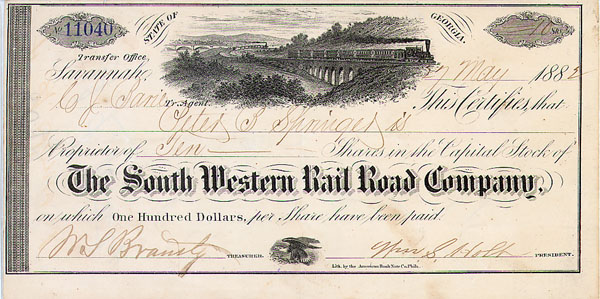 No 11040
STATE OF GEORGIA.
10 SHS.
Transfer Office,
Savannah, May 1882
Tr. Agent. This Certifies, that
Springer is
Proprietor of Ten Shares in the Capital Stock of
The South Western Rail Road Company,
on which One Hundred Dollars, per Share have been paid.
TREASURER. PRESIDENT.
Lith. by the American Bank Note Co. Phila.